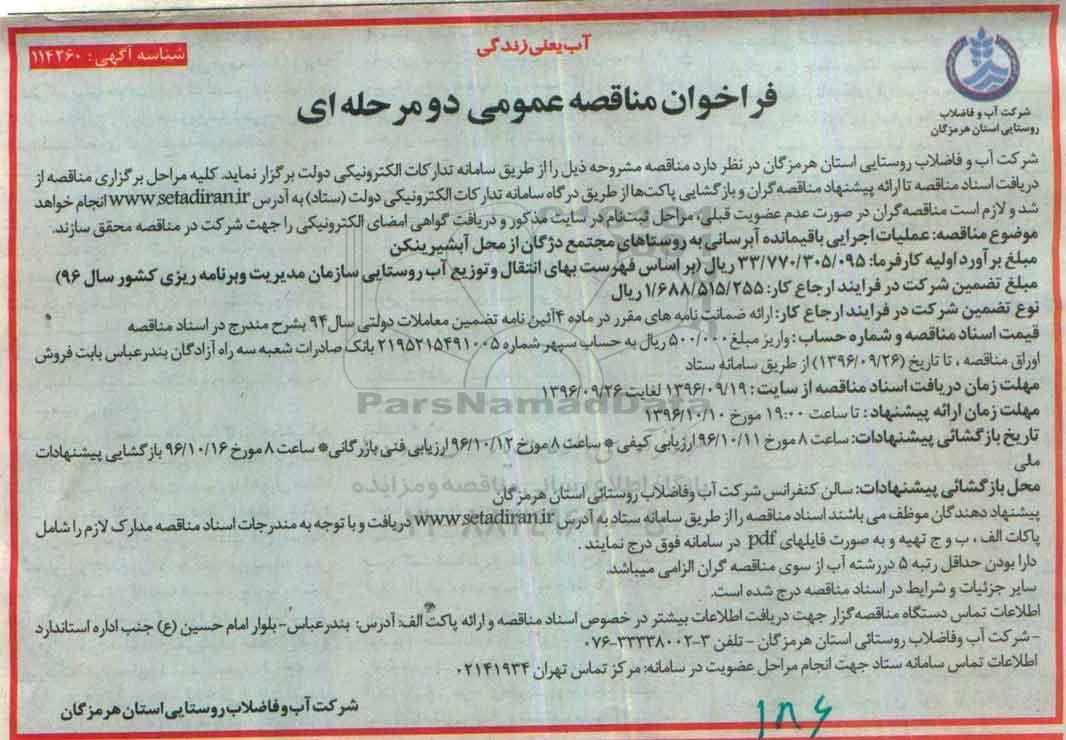 آب یعنی زندگی
شناسه آگهی: ۱۱۴۲۶۰
فراخوان مناقصه عمومی دو مرحله ای
شرکت آب و فاضلاب
روستایی استان هرمزگان
شرکت آب و فاضلاب روستایی استان هرمزگان در نظر دارد مناقصه مشروحه ذیل را از طریق سامانه تدارکات الکترونیکی دولت برگزار نماید. کلیه مراحل برگزاری مناقصه از
دریافت اسناد مناقصه تا ارائه پیشنهاد مناقصه‌گران و بازگشایی پاکت‌ها از طریق درگاه سامانه تدارکات الکترونیکی دولت (ستاد) به آدرس www.setadiran.ir انجام خواهد
شد و لازم است مناقصه‌گران در صورت عدم عضویت قبلی، مراحل ثبت‌نام در سایت مذکور و دریافت گواهی امضای الکترونیکی را جهت شرکت در مناقصه محقق سازند.
موضوع مناقصه: عملیات اجرایی باقیمانده آبرسانی به روستاهای مجتمع دژگان از محل آبشیرینکن
مبلغ برآورد اولیه کارفرما: ۳۳/۷۷۰/۳۰۵/۰۹۵ ریال (بر اساس فهرست بهای انتقال و توزیع آب روستایی سازمان مدیریت وبرنامه ریزی کشور سال ۹۶)
مبلغ تضمین شرکت در فرایند ارجاع کار: ۱/۶۸۸/۵۱۵/۲۵۵ ریال
نوع تضمین شرکت در فرایند ارجاع کار: ارائه ضمانت نامه های مقرر در ماده ۴آئین نامه تضمین معاملات دولتی سال۹۴ بشرح مندرج در اسناد مناقصه
قیمت اسناد مناقصه و شماره حساب: واریز مبلغ ۵۰۰/۰۰۰ ریال به حساب سپهر شماره ۲۱۹۵۲۱۵۴۹۱۰۰۵ بانک صادرات شعبه سه راه آزادگان بندرعباس بابت فروش
اوراق مناقصه ، تا تاریخ (۱۳۹۶/۰۹/۲۶) از طریق سامانه ستاد
مهلت زمان دریافت اسناد مناقصه از سایت: ۱۳۹۶/۰۹/۱۹ لغایت ۱۳۹۶/۰۹/۲۶
مهلت زمان ارائه پیشنهاد: تا ساعت ۱۹:۰۰ مورخ ۱۳۹۶/۱۰/۱۰
تاریخ بازگشائی پیشنهادات: ساعت ۸ مورخ ۹۶/۱۰/۱۱ ارزیابی کیفی * ساعت ۸ مورخ ۹۶/۱۰/۱۲ ارزیابی فنی بازرگانی* ساعت ۸ مورخ ۹۶/۱۰/۱۶ بازگشایی پیشنهادات
ملی
محل بازگشائی پیشنهادات: سالن کنفرانس شرکت آب وفاضلاب روستائی استان هرمزگان
پیشنهاد دهندگان موظف می باشند اسناد مناقصه را از طریق سامانه ستاد به آدرس www.setadiran.ir دریافت و با توجه به مندرجات اسناد مناقصه مدارک لازم را شامل
پاکات الف ، ب و ج تهیه و به صورت فایلهای pdf در سامانه فوق درج نمایند .
دارا بودن حداقل رتبه ۵ دررشته آب از سوی مناقصه گران الزامی میباشد.
سایر جزئیات و شرایط در اسناد مناقصه درج شده است.
اطلاعات تماس دستگاه مناقصه‌گزار جهت دریافت اطلاعات بیشتر در خصوص اسناد مناقصه و ارائه پاکت الف: آدرس: بندرعباس- بلوار امام حسین (ع) جنب اداره استاندارد
- شرکت آب وفاضلاب روستائی استان هرمزگان - تلفن ۳-۳۳۳۳۸۰۰۲-۰۷۶
اطلاعات تماس سامانه ستاد جهت انجام مراحل عضویت در سامانه: مرکز تماس تهران ۰۲۱۴۱۹۳۴
شرکت آب و فاضلاب روستایی استان هرمزگان
ParsNamadData
پایگاه اطلاع رسانی مناقصه و مزایده